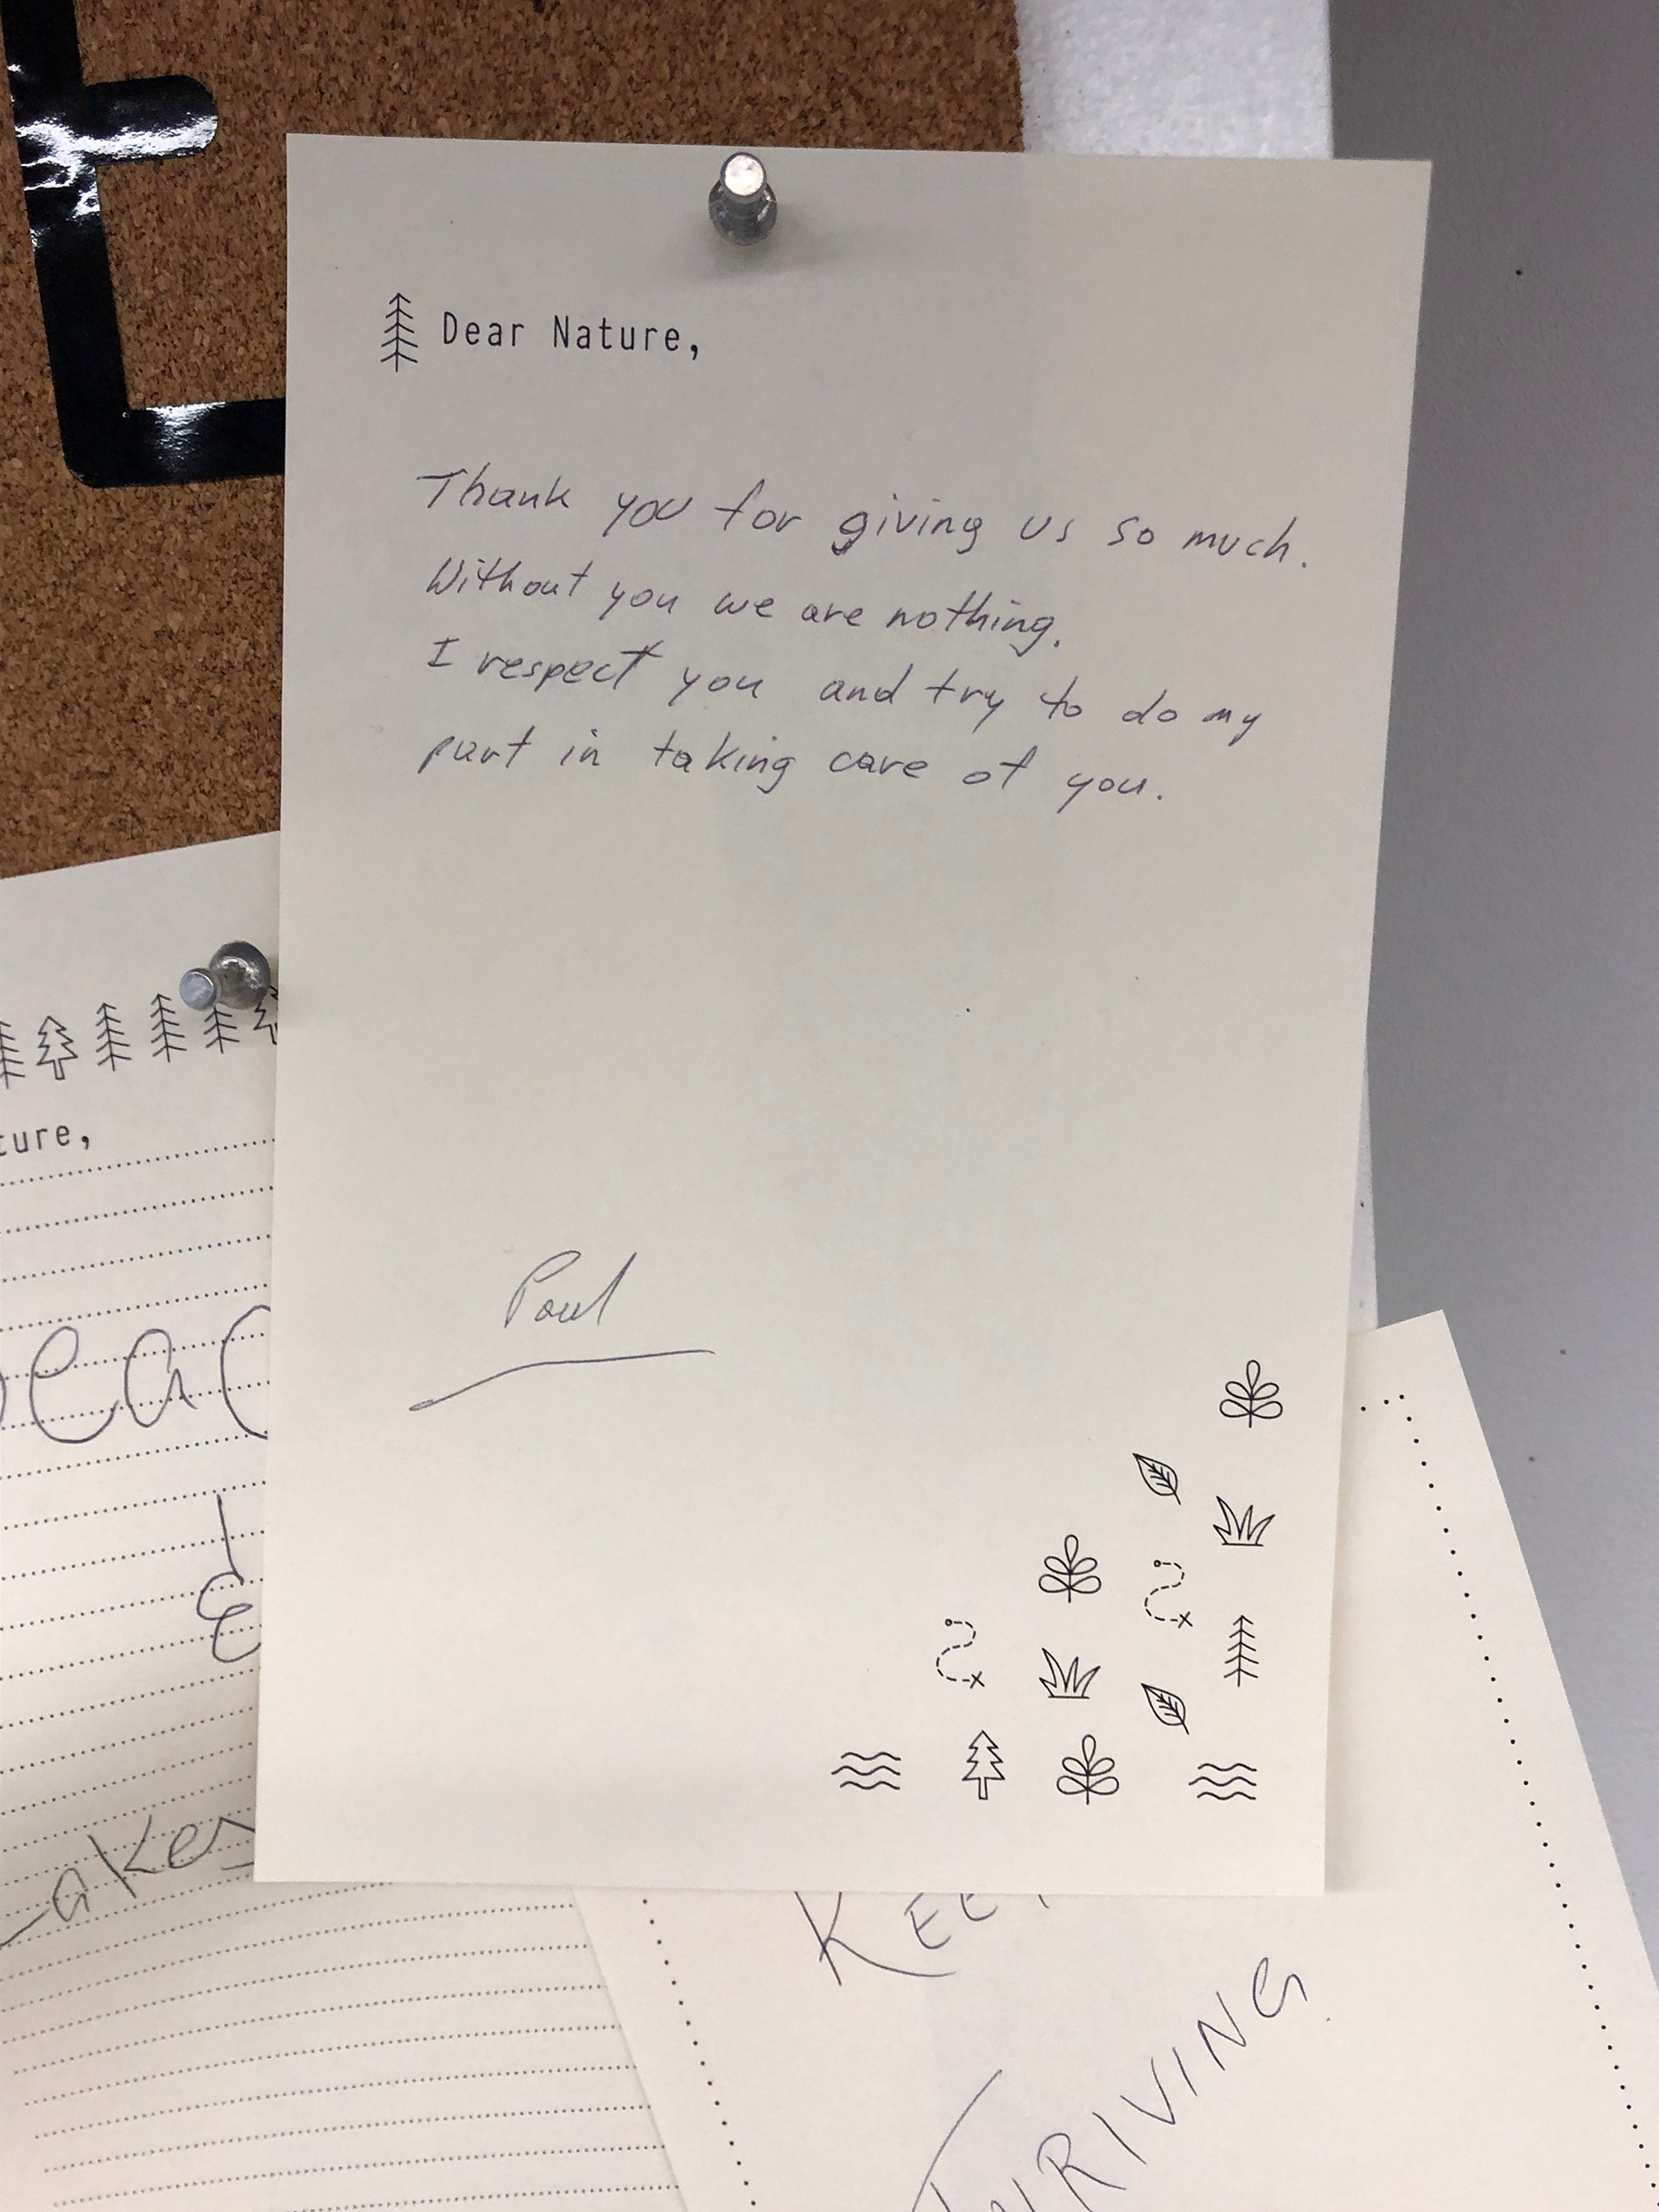 Dear Nature,
Thank you for giving us so much.
Without you we are nothing.
I respect you and try to do my
part in taking care of you.
Paul
ture,
eac
akes
KEEP
THRIVING